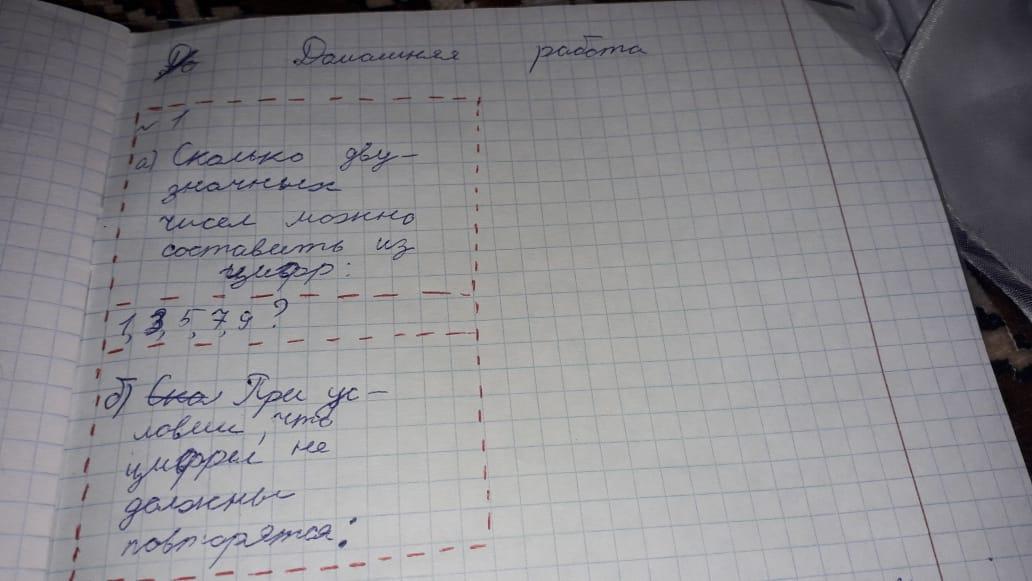 Домашняя работа
~ 1
а) Сколько дву-
значных
чисел можно
составить из
цифр:
1, 3, 5, 7, 9 ?
б) При ус-
ловии, что
цифры не
должны
повторятся: